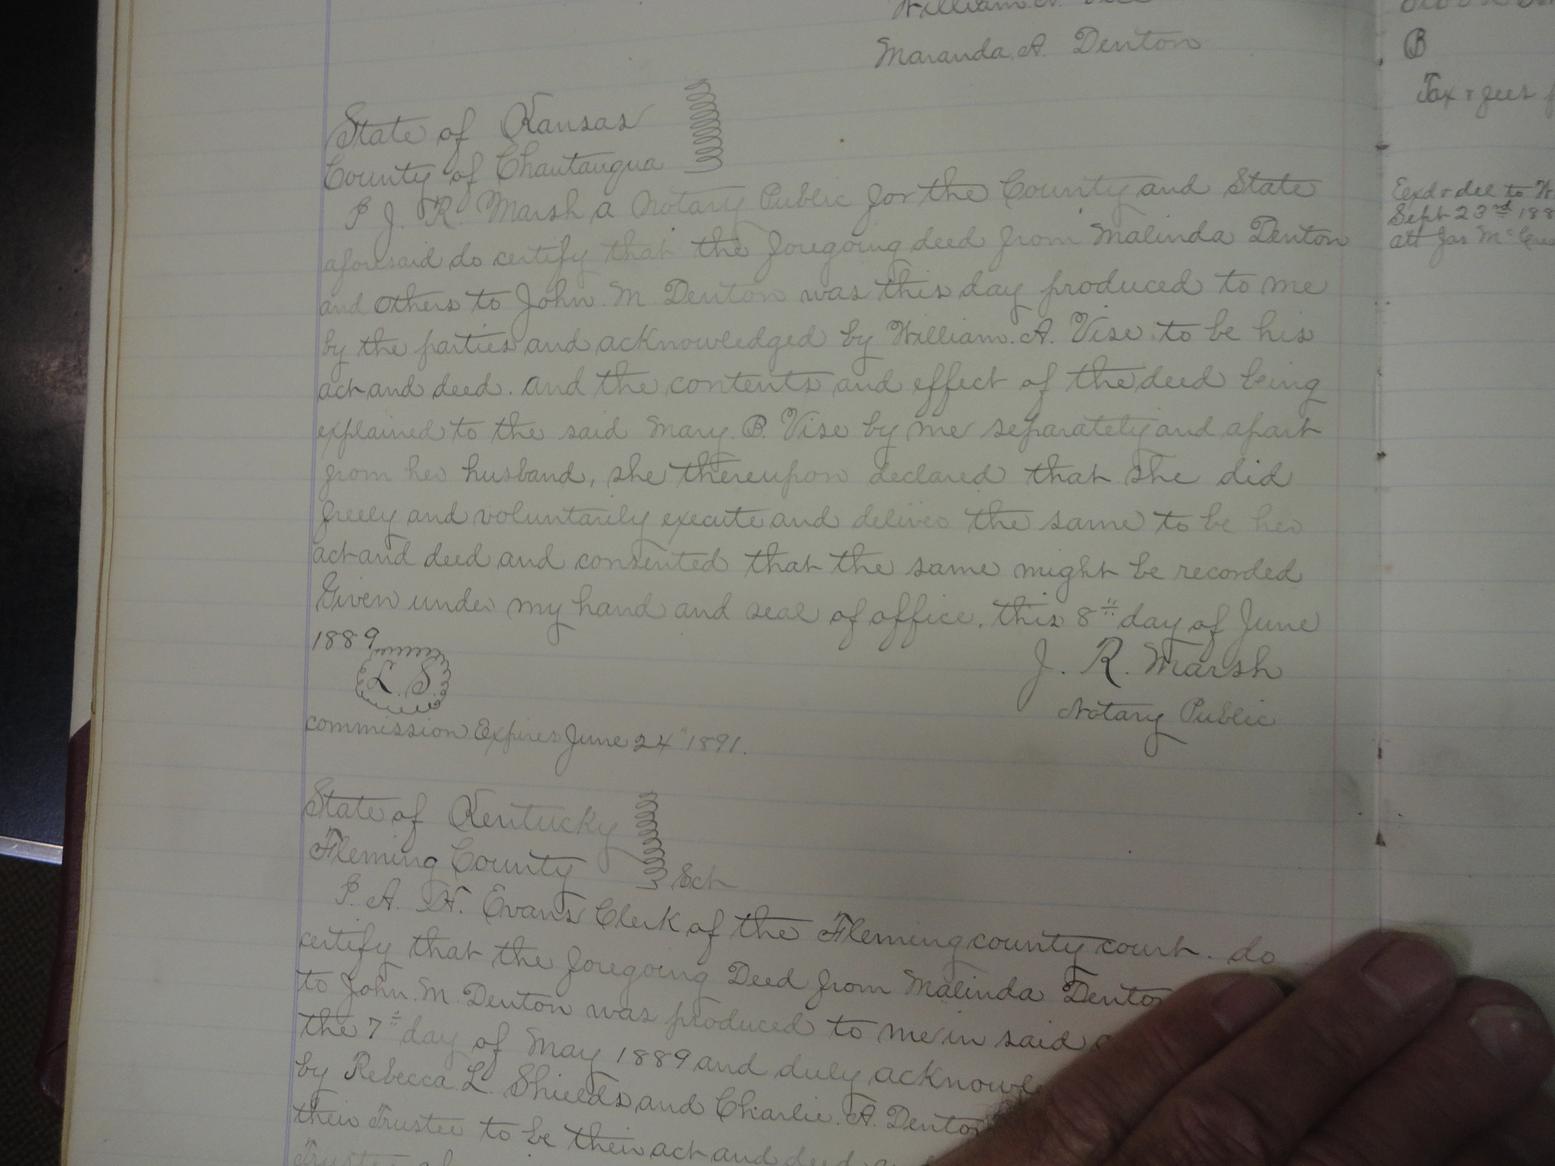 Maranda. A. Denton
State of Kansas
County of Chautauqua
I J. R. Marsh a Notary Public for the County and State
aforesaid do certify that the foregoing deed from Malinda Denton
and others to John. M. Denton was this day produced to me
by the parties and acknowledged by William. A. Vise. to be his
act and deed. and the contents and effect of the deed being
explained to the said Mary. B. Vise by me separately and apart
from her husband, she thereupon declared that she did
freely and voluntarily execute and deliver the same to be her
act and deed and consented that the same might be recorded
Given under my hand and seal of office. this 8th day of June
1889
L. S.
J. R. Marsh
Notary Public
commission Expires June 24" 1891.
State of Kentucky
Fleming County
Sct
I. A. H. Evans Clerk of the Fleming county court. do
certify that the foregoing Deed from Malinda Denton
to John. M. Denton was produced to me in said
the 7th day of May 1889 and duly
by Rebecca L. Shields and Charlie. A. Denton
their Trustee to be their act and deed
B
Tax & fees
Exd & del to
Sept 23rd 188
att Jas